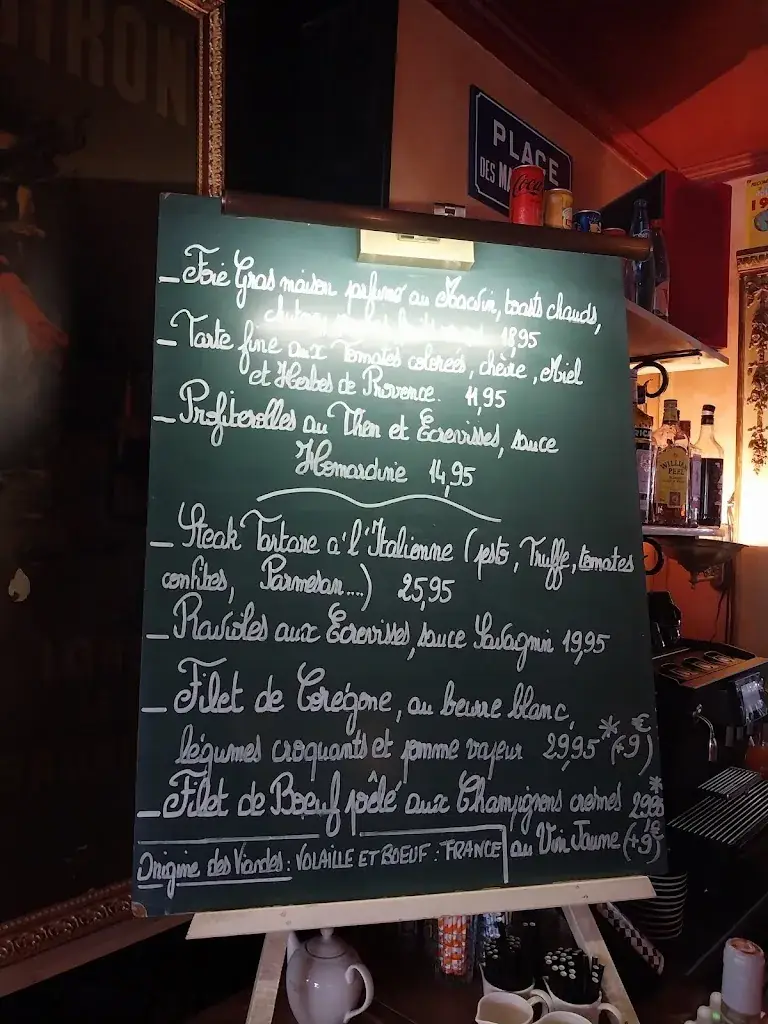 TRON
PLACE
DES MA
Coca
– Foie Gras maison parfumé au Macvin, toasts chauds,
18,95
– Tarte fine aux Tomates colorées, chèvre, Miel
et Herbes de Provence. 11,95
– Profiterolles au Thon et Écrevisses, sauce
Homardine 14,95
– Steak Tartare à l'Italienne (pesto, Truffe, tomates
confites, Parmesan....) 25,95
– Ravioles aux Écrevisses, sauce Savagnin 19,95
– Filet de Corégone, au beurre blanc,
légumes croquants et pomme vapeur 29,95 * (+9€)
– Filet de Boeuf poêlé aux Champignons crèmés 29,95 *
au Vin Jaune (+9€)
Origine des Viandes : VOLAILLE ET BOEUF : FRANCE
WILLIAM
PEEL